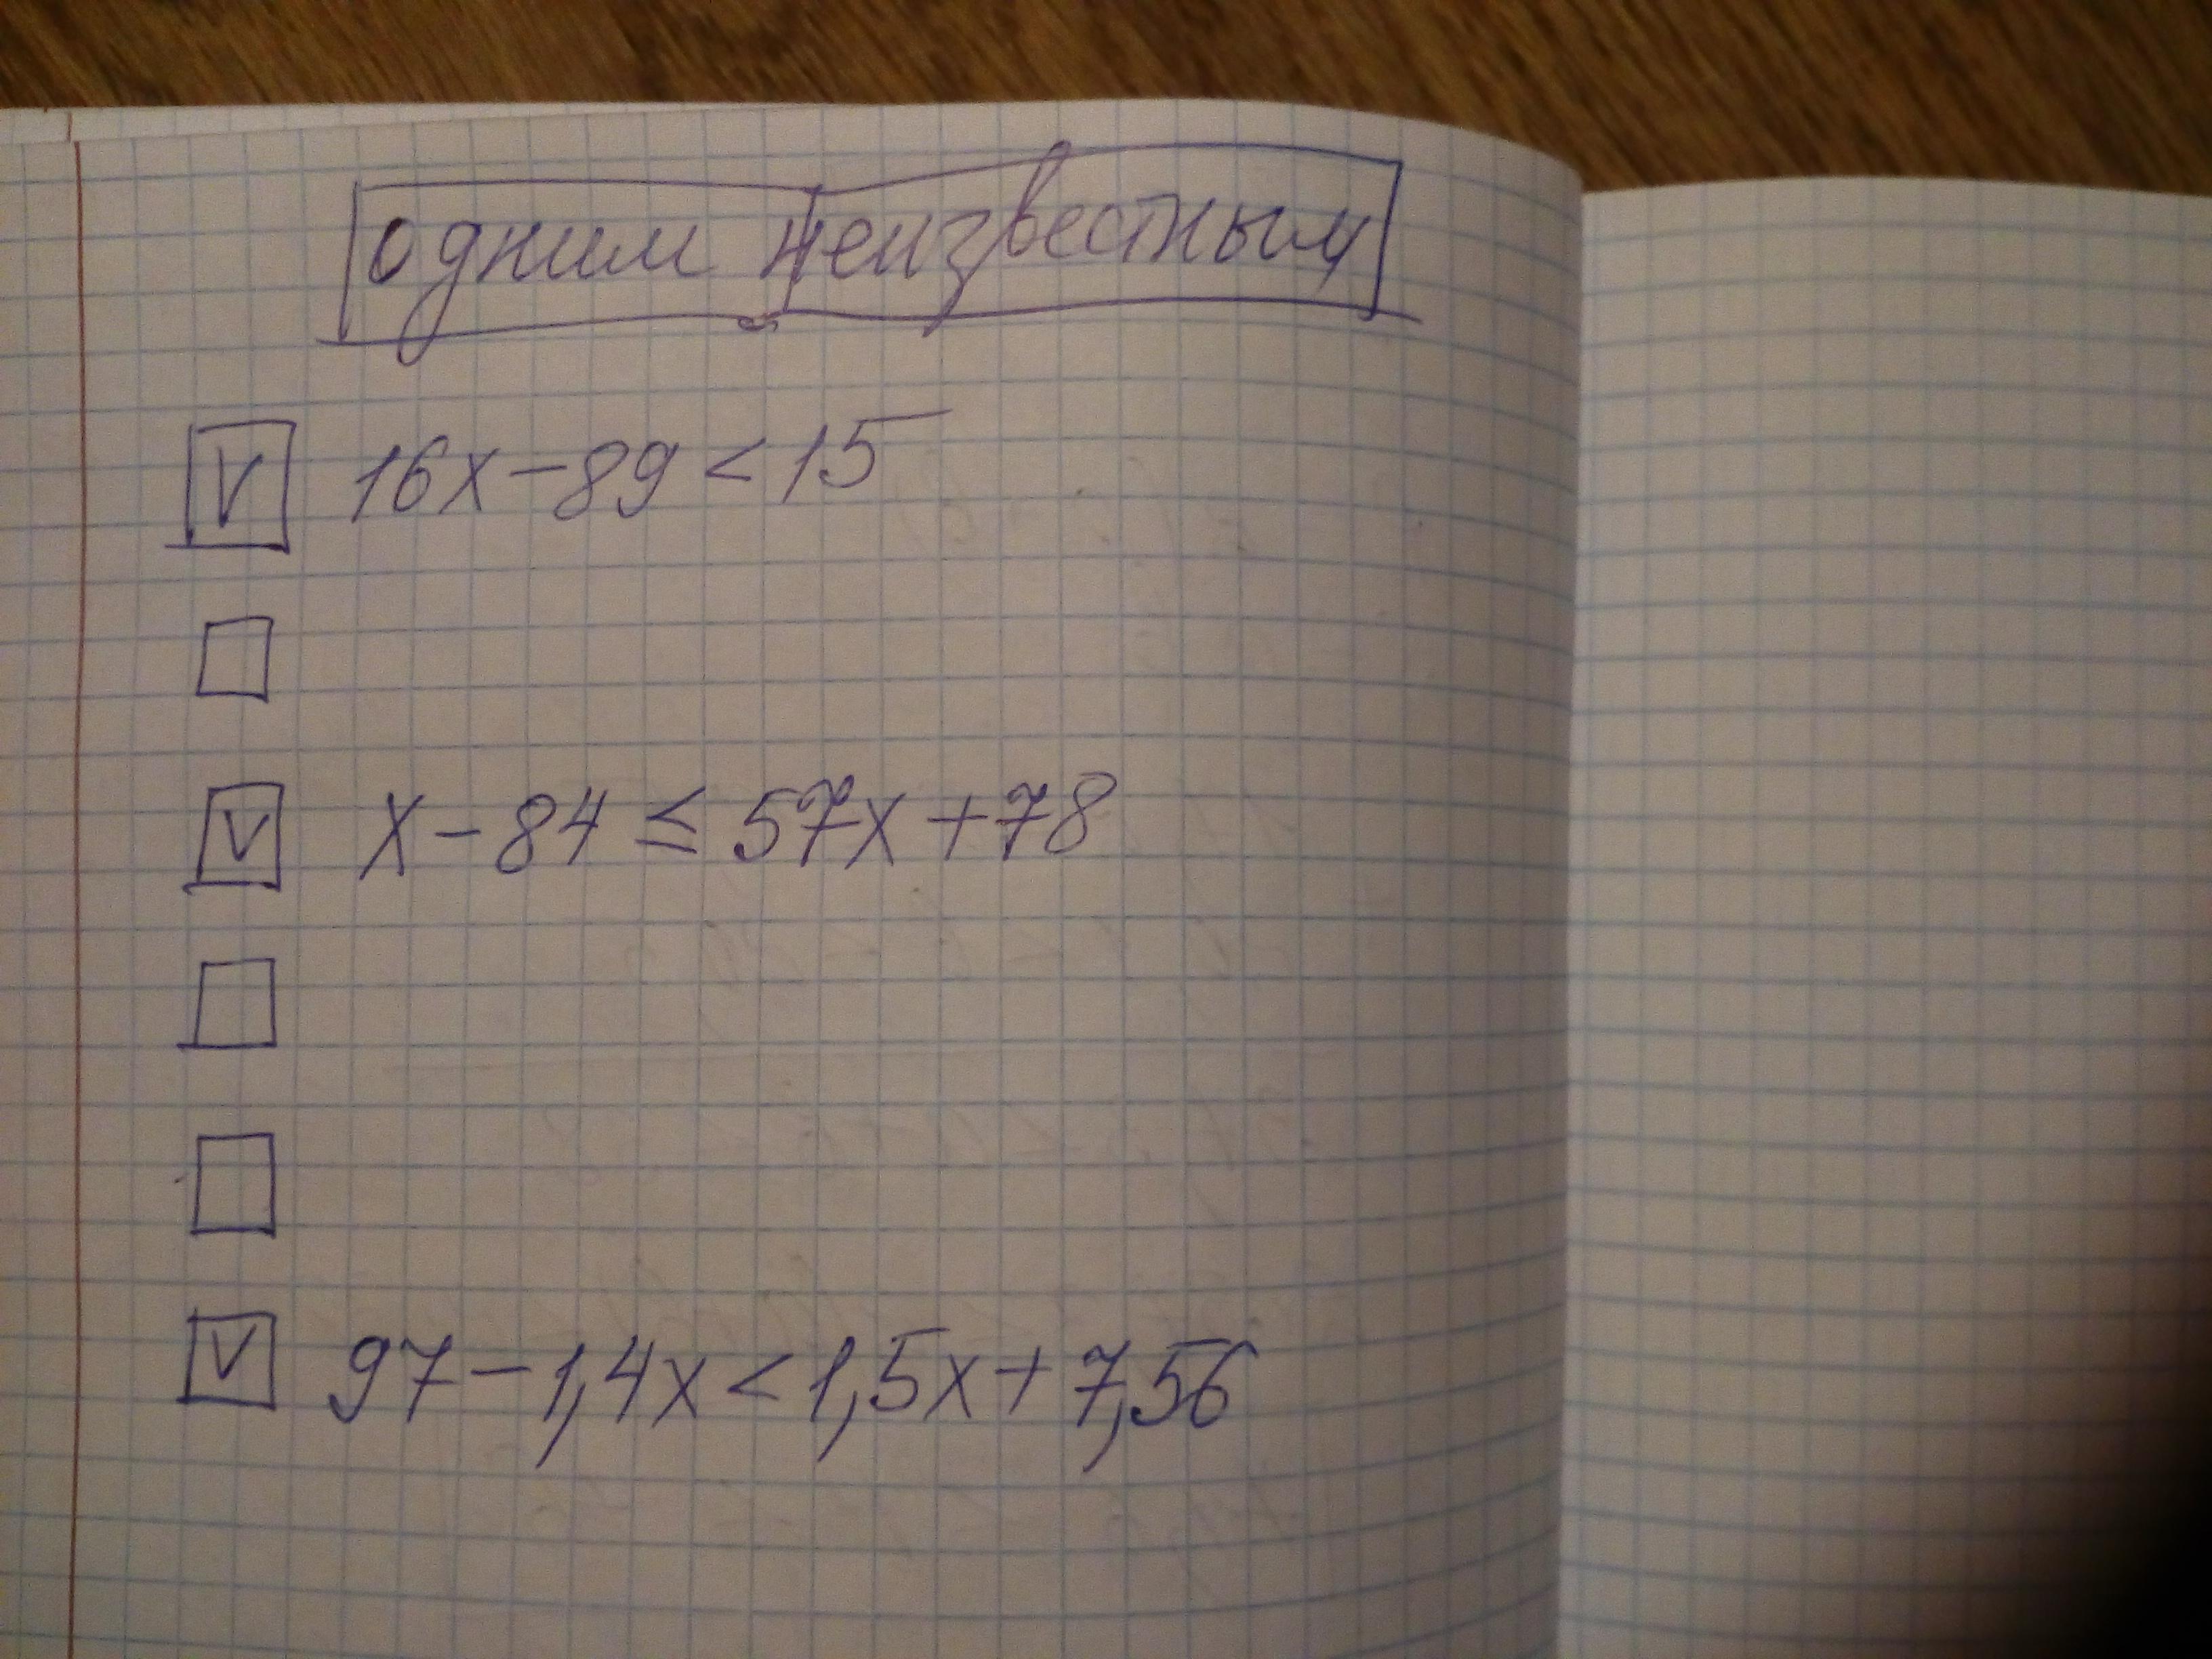 одним неизвестным
V 16x-89<15
V x-84≤57x+78
V 97-1,4x<1,5x+7,56